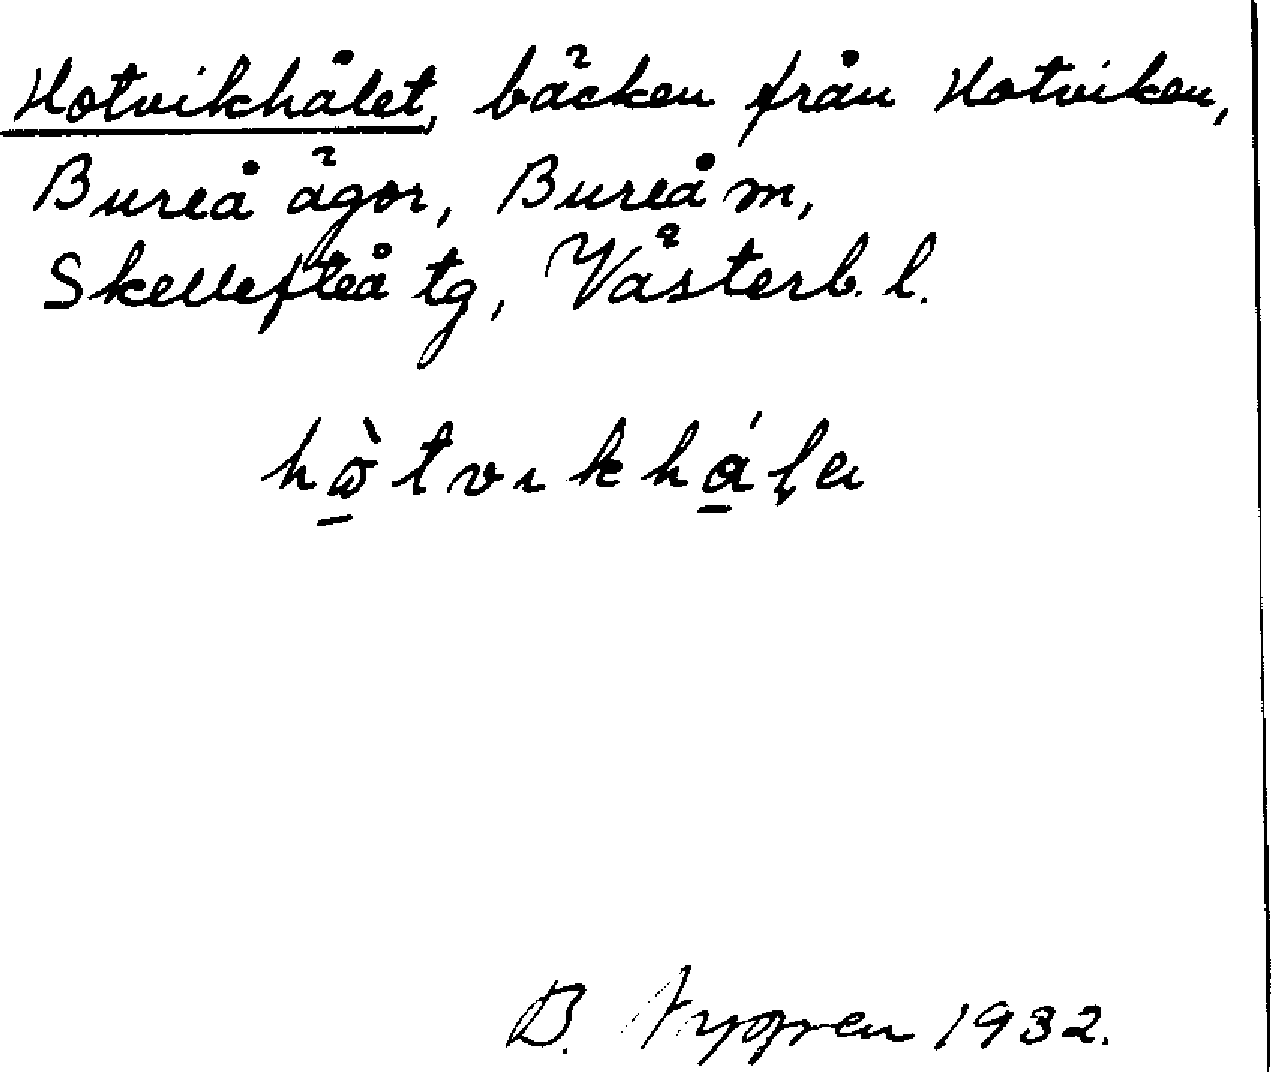 Hotvikhålet, bäcken från Hotviken,
Bureå ägor, Bureå m,
Skellefteå tg, Västerb. l.
hò̱tvıkhá̱ɭer
B. Nygren 1932.